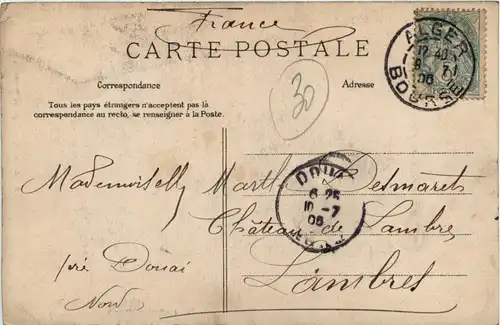 France
CARTE POSTALE
Correspondance
Adresse
Tous les pays étrangers n'acceptent pas là
correspondance au recto, se renseigner à la Poste.
30
ALGER
12 40
8 - 7
06
BOURSE
DOUAI
6 25
10 - 7
06
Mademoiselle Marthe Desmarets
Château de Lambres
près Douai
Lambres
Nord